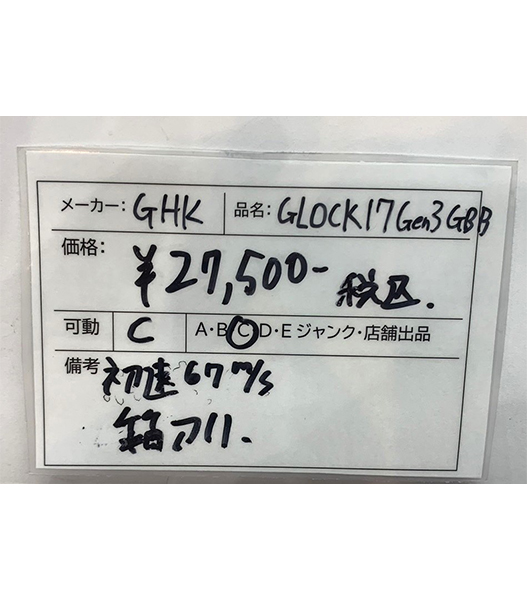 メーカー: GHK 品名: GLOCK17Gen3GBB
価格: ¥27,500- 税込.
可動 C A・B・C・D・E ジャンク・店舗出品
備考 初速67m/s
箱アリ.